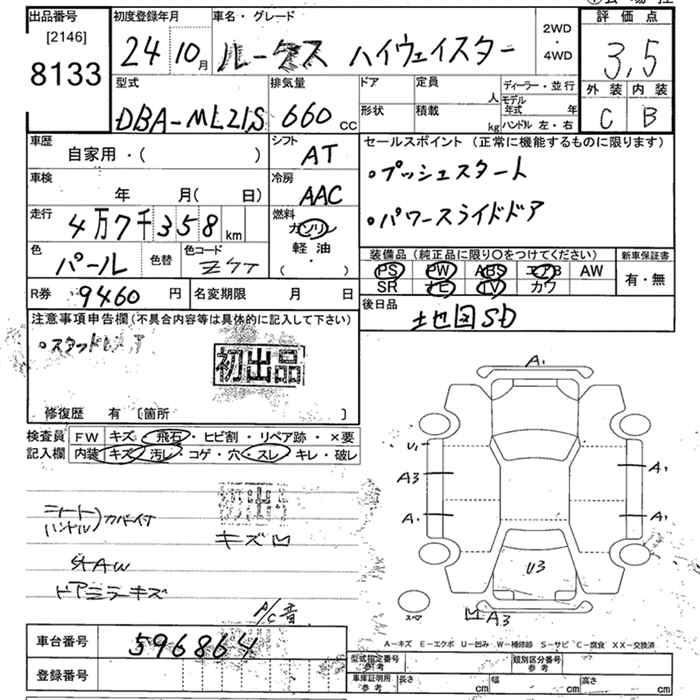 出品番号
[2146]
8133
初度登録年月
24 10月
車名・グレード
ルークス ハイウェイスター
2WD
・
4WD
評価点
3,5
外装 内装
C B
型式
DBA-ML21S
排気量
660 cc
ドア
定員
人
ディーラー・並行
モデル年式 年
形状
積載
kg
ハンドル 左・右
車歴
自家用・( )
シフト
AT
セールスポイント (正常に機能するものに限ります)
•プッシュスタート
•パワースライドドア
車検
年 月( 日)
冷房
AAC
走行
4万7千358km
燃料
ガソリン
軽油
・
( )
色
パール
色替
色コード
Z7T
装備品 (純正品に限り○をつけてください)
PS PW ABS エアB AW
SR ナビ TV カワ
新車保証書
有・無
R券
9460円
名変期限 月 日
後日品
地図SD
注意事項申告欄(不具合内容等は具体的に記入して下さい)
初出品
修復歴 有 [箇所 ]
検査員記入欄
FW キズ・飛石・ヒビ割・リペア跡・×要
内装 キズ・汚レ・コゲ・穴・スレ・キレ・破レ
初出
キズ凹
シート
ハンドル)カバーイタ
社外AW
ドアミラーキズ
P/C音
A1
U1
A3
A1
A1
A1
U3
スペア
凹A3
A-キズ E-エクボ U-凹み W-補修跡 S-サビ C-腐食 XX-交換済
車台番号
596864
登録番号
型式指定番号
参考
類別区分番号
参考
車庫証明用
参考
長さ cm
幅 cm
高さ cm